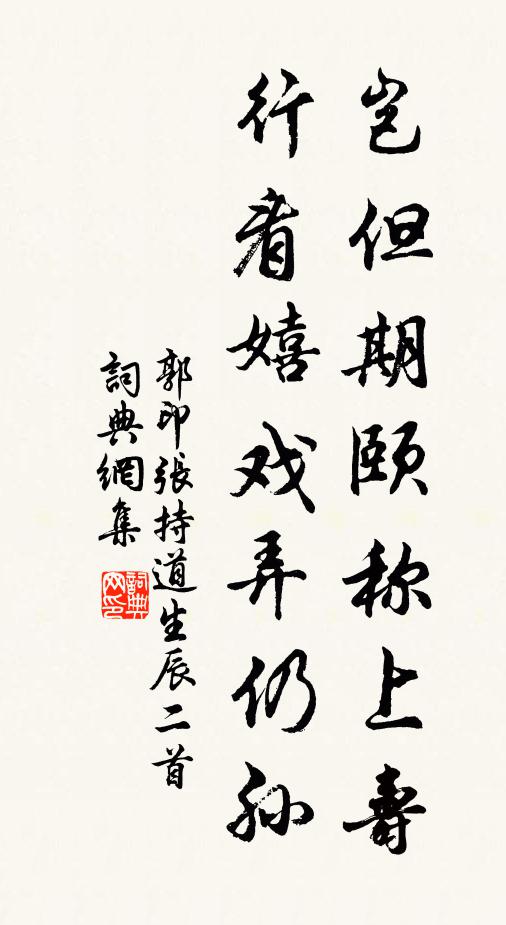 岂但期颐称上壽
行看嬉戏弄仍孙
郭印張持道生辰二首
詞典網集
詞典网印